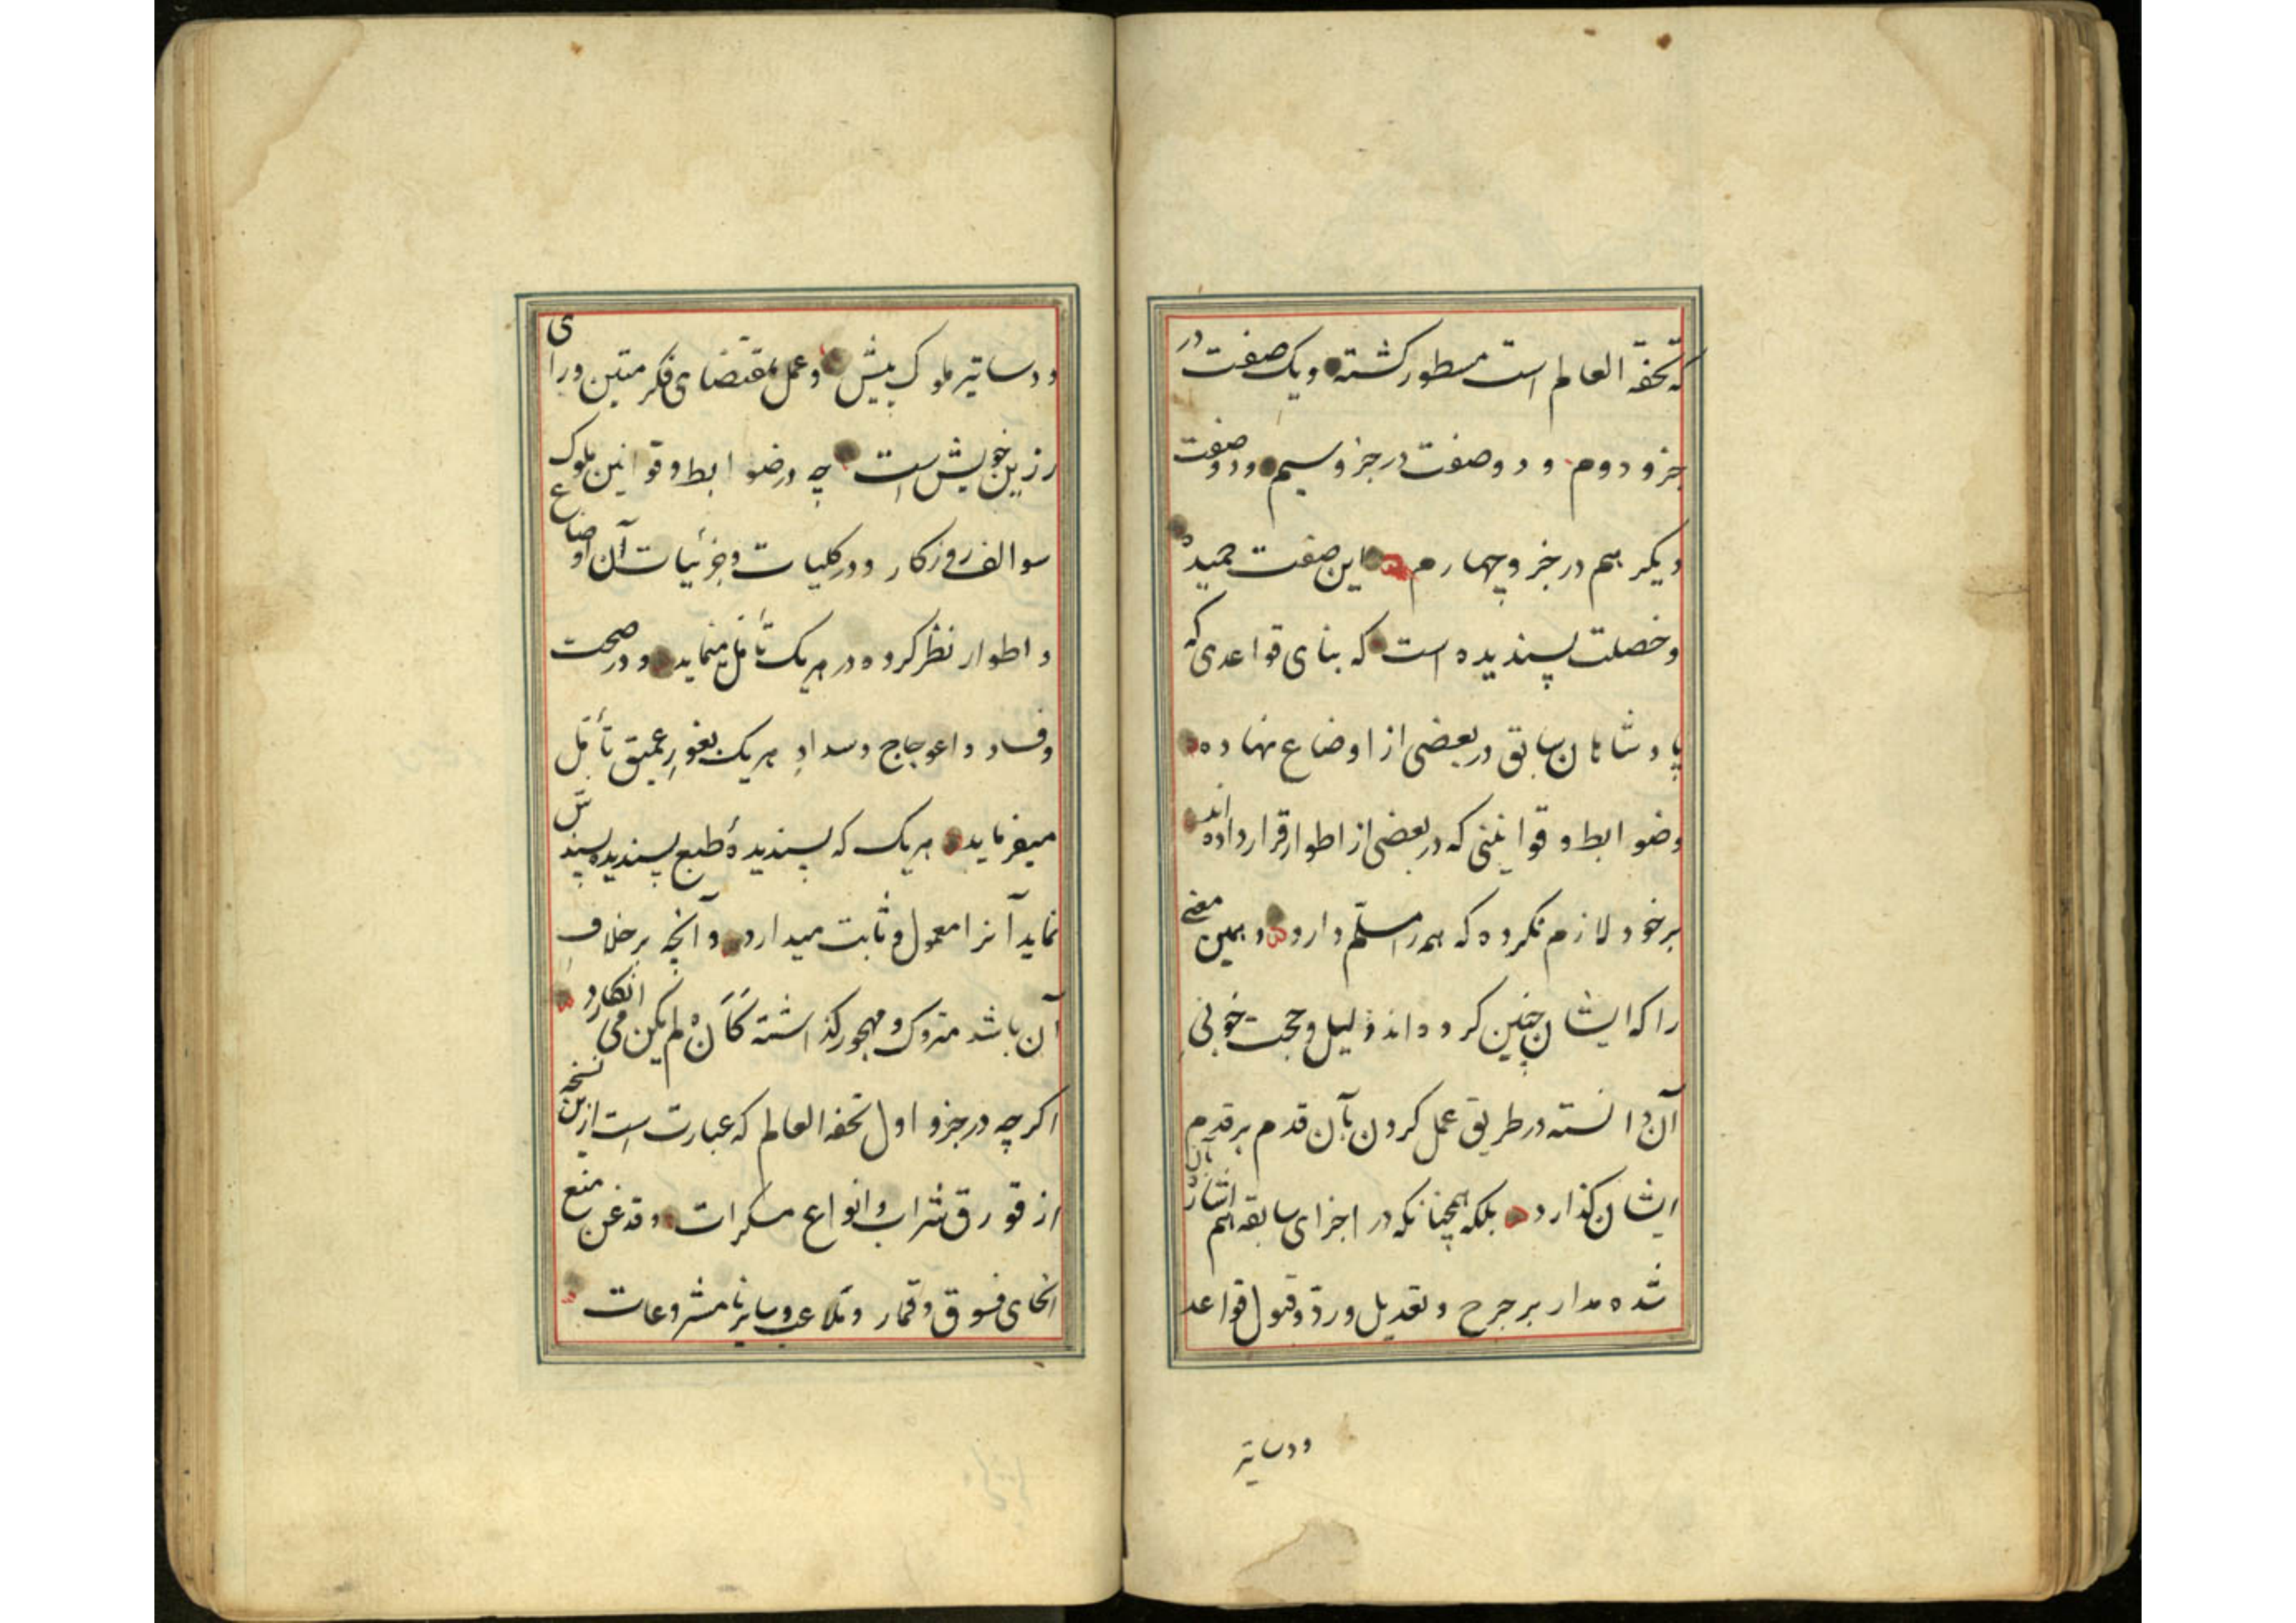 که تحفة العالم است مسطور کشته و یک صفت در
جزو دوم و دو صفت در جزو سیم و دو صفت
دیکر هم در جزو چهارم این صفت حمیده
و خصلت پسندیده است که بنای قواعدی که
پادشاهان سابق در بعضی از اوضاع نهاده
و ضوابط و قوانینی که در بعضی از اطوار قرار داده اند
بر خود لازم نکرده که همه را مسلّم دارد و همین معنی
را که ایشان چنین کرده اند دلیل و حجت خوبی
آن دانسته در طریق عمل کردن بآن قدم بر قدم
ایشان کذارد بلکه همچنانکه در اجزای سابقه هم اشاره بآن
شده مدار بر جرح و تعدیل و ردّ و قبول قواعد
و دساتیر
و دساتیر ملوک پیش و عمل بمقتضای فکر متین و رای
رزین خویش است چه در ضوابط و قوانین ملوک
سوالف روزکار و در کلیات و جزئیات آن اوضاع
و اطوار نظر کرده در هر یک تأمّل مینماید و در صحت
و فساد و اعوجاج و سدادِ هر یک بغورِ عمیق تأمّل
میفرماید هر یک که پسندیدهٔ طبع پسندیده پسندش
نماید آنرا معمول و ثابت میدارد و آنچه بر خلاف
آن باشد متروک و مهجور کذاشته کَاَنْ لم یکن می انکارد
اکرچه در جزو اول تحفة العالم که عبارت است ازین نسخه
از قورق شراب و انواع مسکرات و قدغن منع
انحای فسوق و قمار و تلاعب و سایر نامشروعات